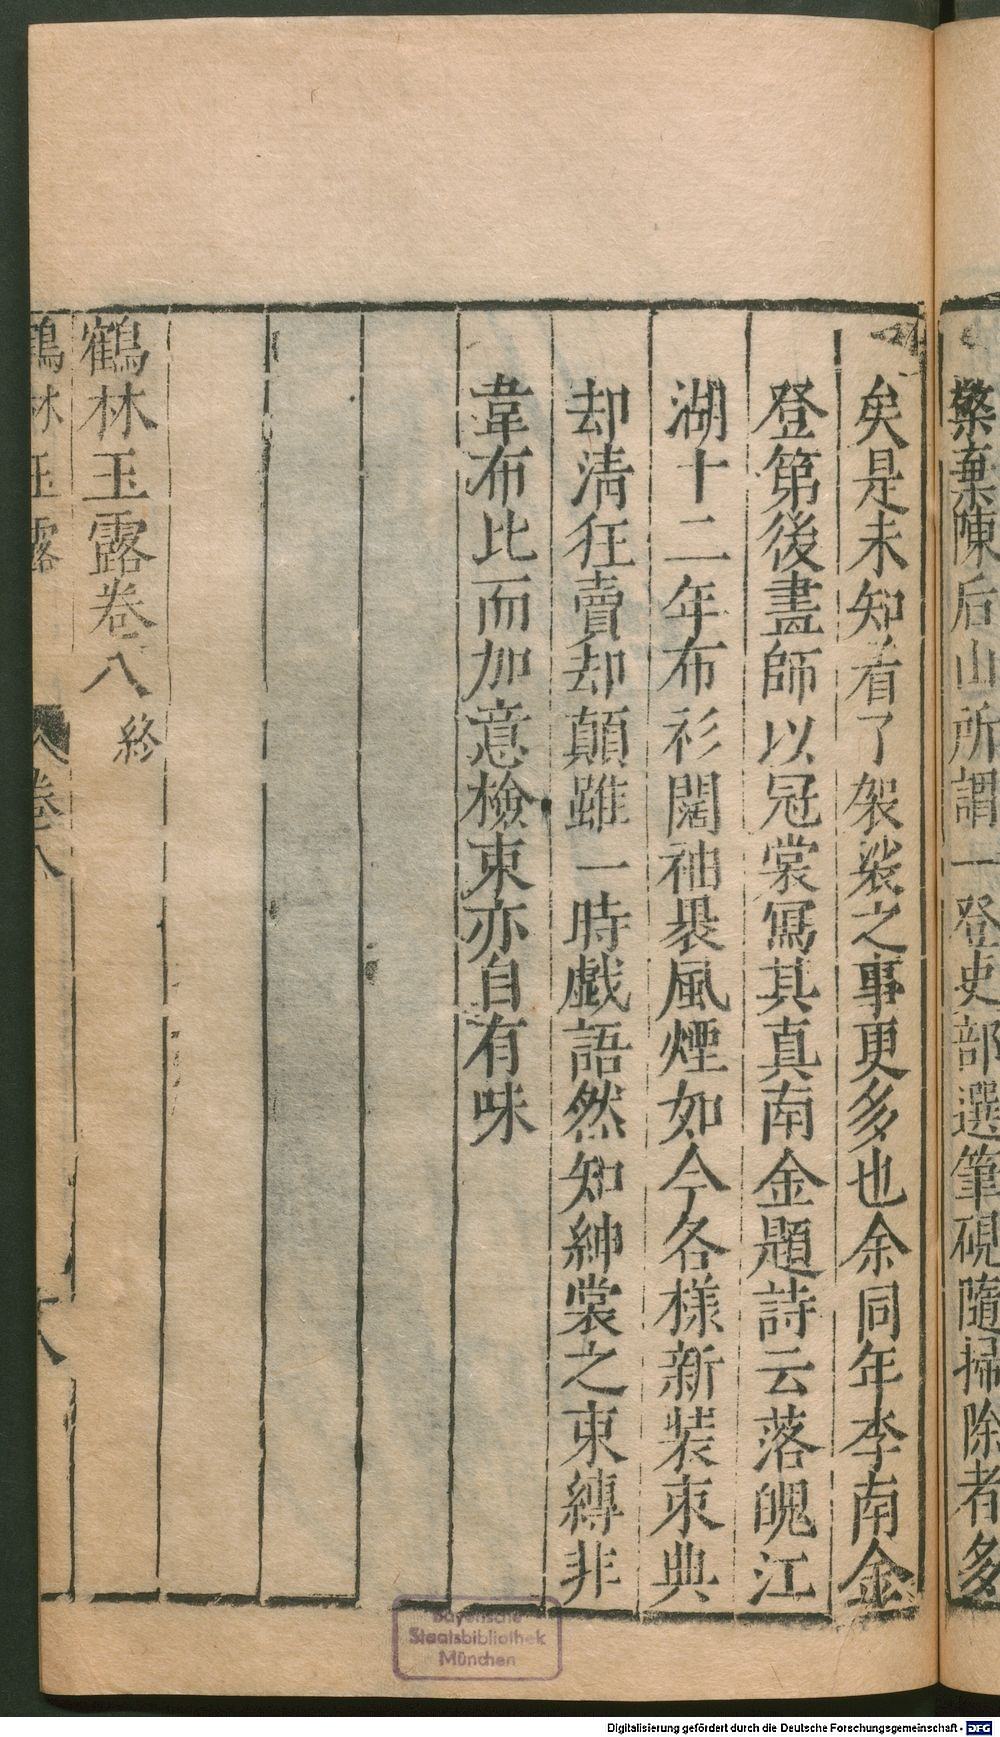 檠棄陳后山所謂一登吏部選筆硯隨掃除者多
矣是未知着了袈裟之事更多也余同年李南金
登第後畫師以冠裳寫其真南金題詩云落魄江
湖十二年布衫闊袖裹風煙如今各樣新裝束典
却清狂賣却顛雖一時戲語然知紳裳之束縛非
韋布比而加意檢束亦自有味
鶴林玉露卷八 終
鶴林玉露 卷八
Bayerische
Staatsbibliothek
München
Digitalisierung gefördert durch die Deutsche Forschungsgemeinschaft - DFG